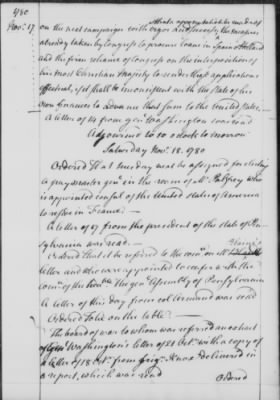 1780
Nov. 17
on the next campaign with vigor and success, the measures
already taken by Congress to procure loans in Spain & Holland
and the firm reliance of Congress on the interposition of
his most Christian Majesty to render their applications
effectual, yet shall be inconsistent with the state of his
own finances to advance that sum to the United States.
A letter of 14 from genl Washington was read.
Adjourned to 10 o Clock to morrow
Saturday Nov. 18. 1780
Ordered That tuesday next be assigned for electing
a pay master genl in the room of Mr Palfrey who
is appointed consul of the United States of America
to reside in France.
A letter of 17 from the president of the state of Pen-
sylvania was read.
Ordered That it be referred to the comee on Mr
letter and who were appointed to confer with the
comee of the honble the genl Assembly of Pensylvania
A letter of this day from col Armand was read
Ordered To lie on the table
The board of war to whom was referred an extract
of genl Washington's letter of 21 Octr. with a copy of
a letter of 18 Octr. from brigr Knox delivered in
a report, which was read
Ordered